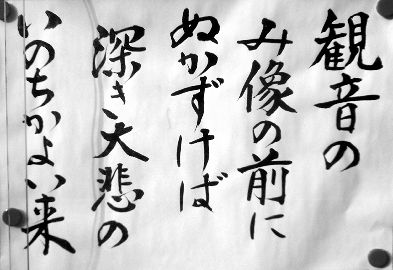 観音の
み像の前に
ぬかずけば
深き大悲の
いのちかよい来